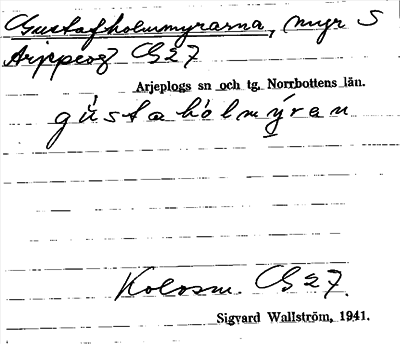 Gustafholmmyrarna, myr S
Arjeplog C27
Arjeplogs sn och tg. Norrbottens län.
gústahòlmýran
Kolosm. C27.
Sigvard Wallström, 1941.